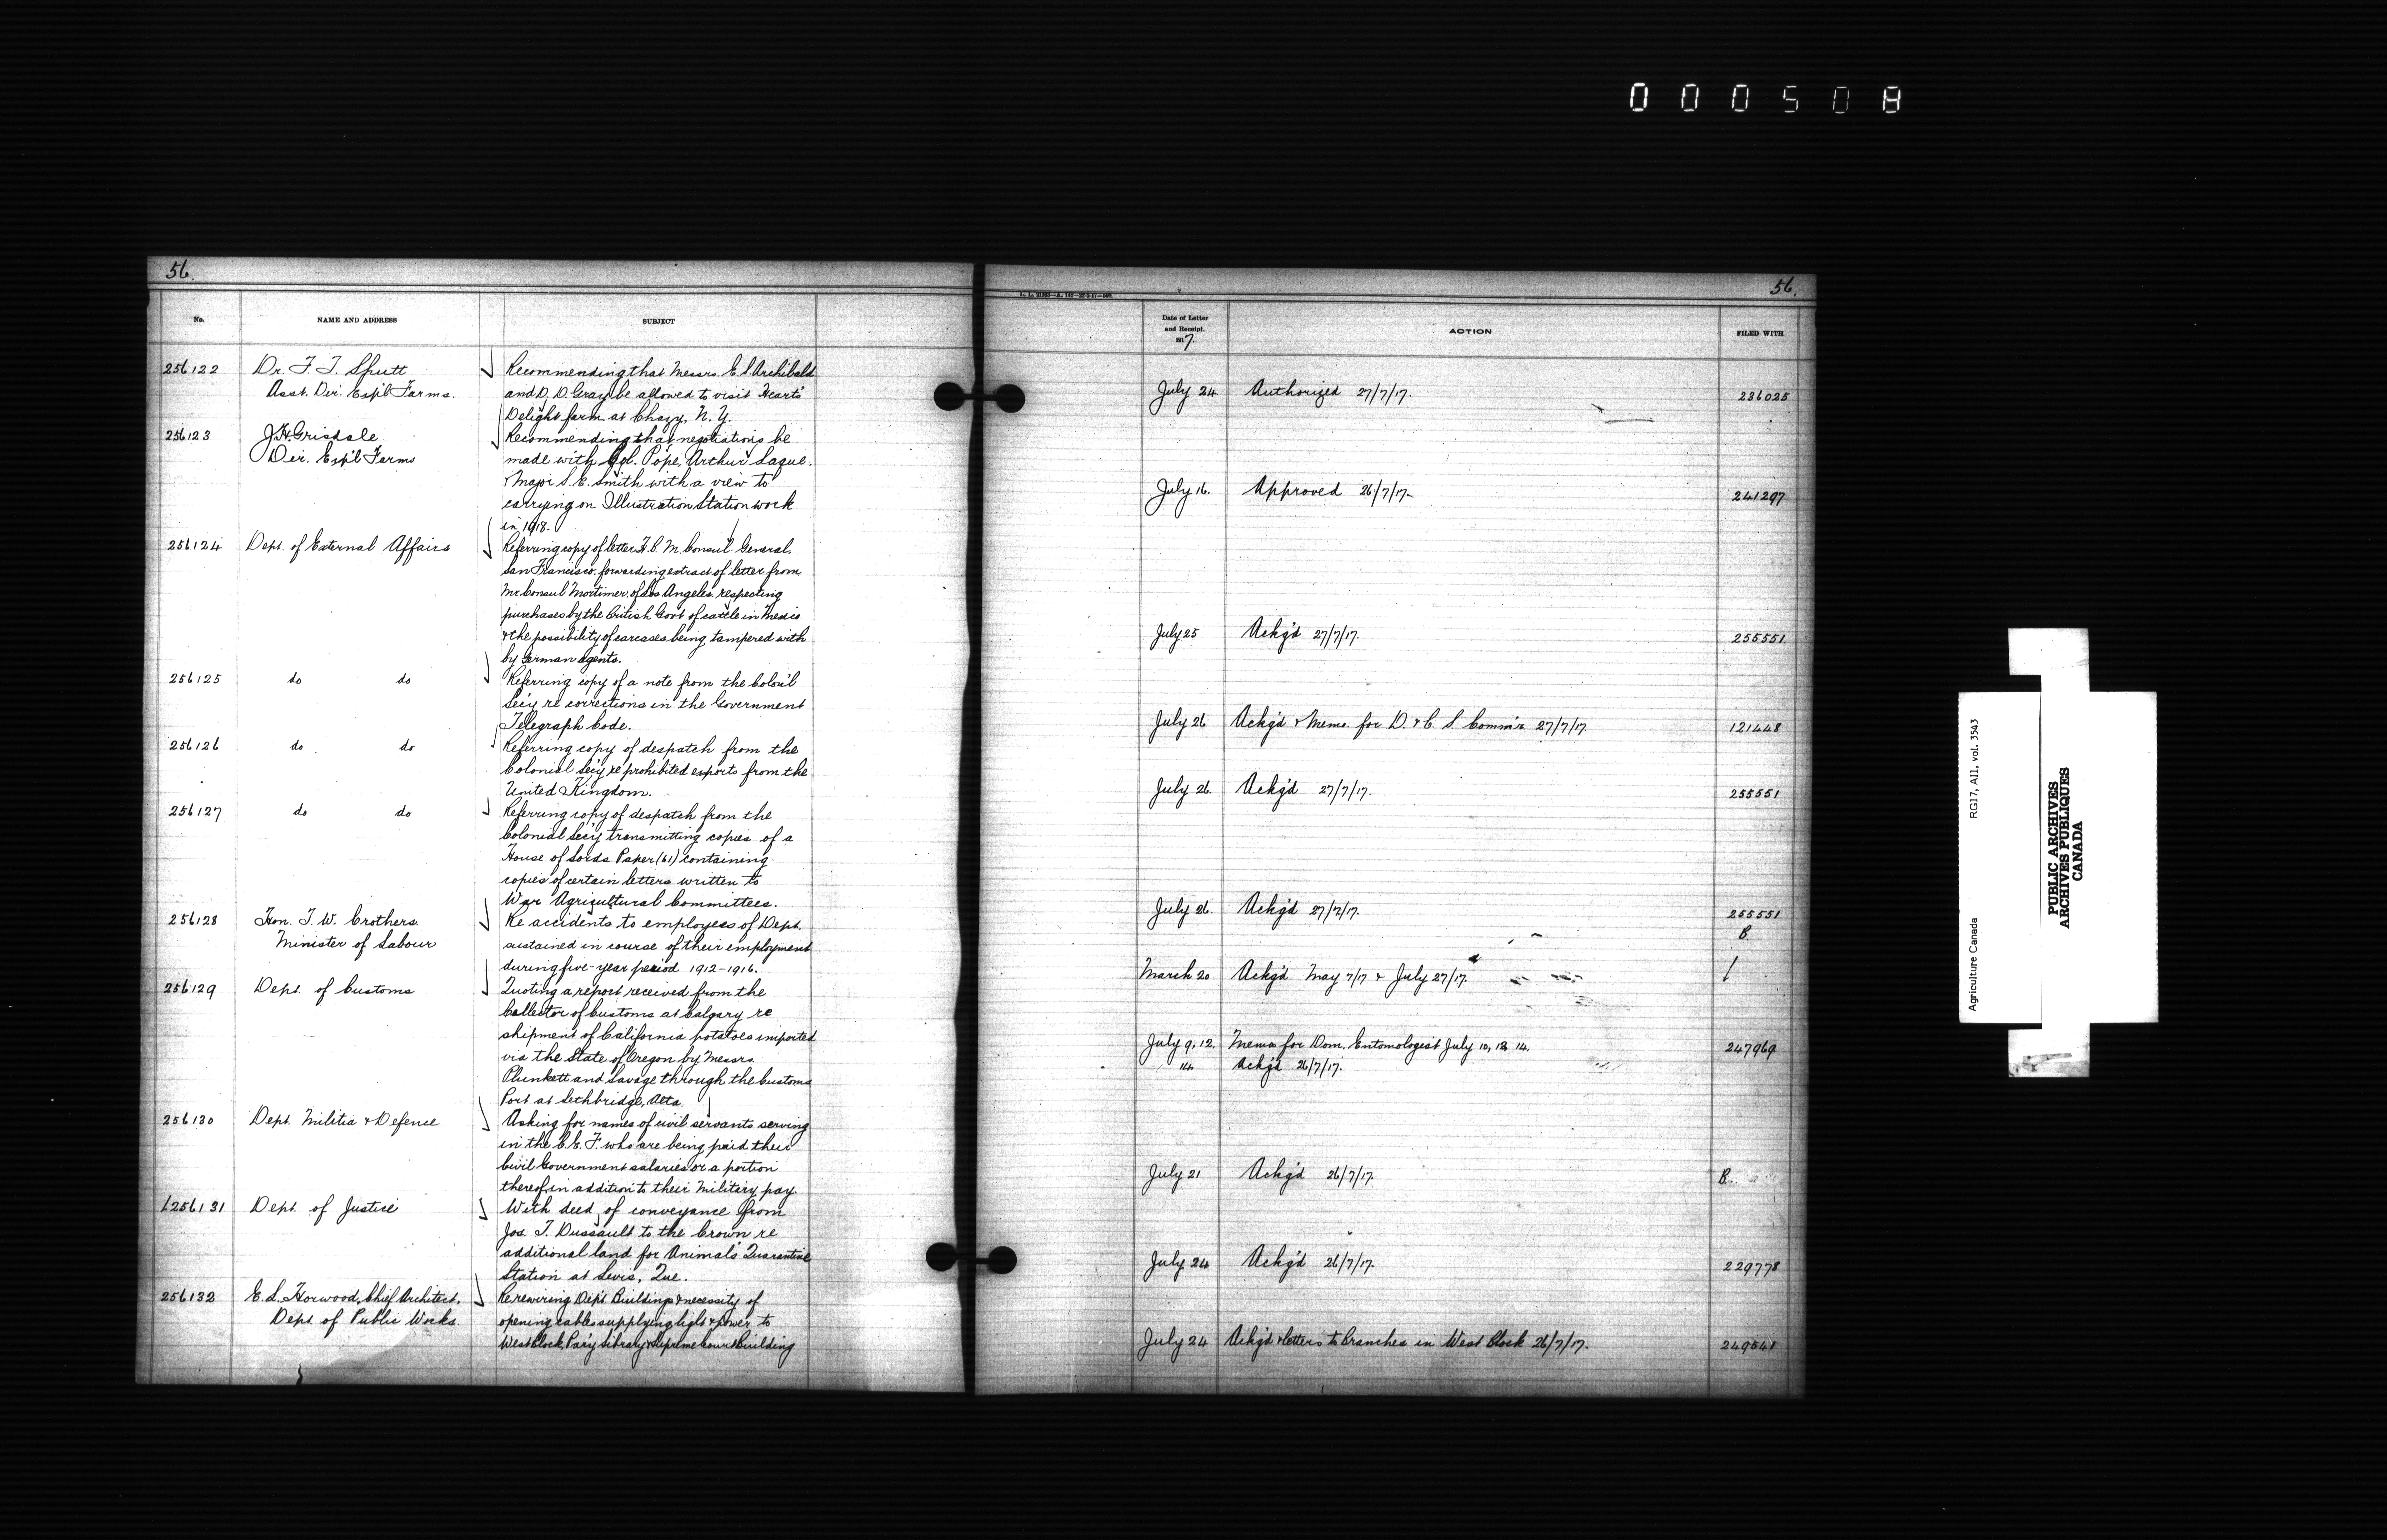 000508
56.
No.
NAME AND ADDRESS
SUBJECT
256122
Dr. F. T. Shutt
Asst. Dir. Exp'l Farms.
Recommending that Messrs. E. S. Archibald
and D. D. Gray be allowed to visit Heart's
Delight farm at Chazy, N. Y.
256123
J. H. Grisdale
Dir. Exp'l Farms
Recommending that negotiations be
made with Col. Pope, Arthur Laque.
& Major S. E. Smith with a view to
carrying on Illustration Station work
in 1918.
256124
Dept. of External Affairs
Referring copy of letter H. B. M. Consul General.
San Francisco. forwarding extract of letter from
Mr. Consul Mortimer, of Los Angeles, respecting
purchases by the British Govt of cattle in Mexico
& the possibility of carcases being tampered with
by German agents.
256125
do do
Referring copy of a note from the Colon'l
Sec'y re corrections in the Government
Telegraph Code.
256126
do. do
Referring copy of despatch from the
Colonial Sec'y re prohibited exports from the
United Kingdom.
256127
do do
Referring copy of despatch from the
Colonial Sec'y transmitting copies of a
House of Lords Paper (61) containing
copies of certain letters written to
War Agricultural Committees.
256128
Hon. T. W. Crothers.
Minister of Labour
Re accidents to employees of Dept.
sustained in course of their employment
during five-year period 1912-1916.
256129
Dept. of Customs
Quoting a report received from the
Collector of Customs at Calgary re
shipment of California potatoes imported
via the State of Oregon by Messrs.
Plunkett and Savage through the Customs
Port at Lethbridge, Alta.
256130
Dept. Militia & Defence
Asking for names of civil servants serving
in the C. E. F. who are being paid their
Civil Government salaries or a portion
thereof in addition to their Military pay.
256131
Dept. of Justice
With deed of conveyance from
Jos. T. Dussault to the Crown re
additional land for Animals Quarantine
Station at Levis, Que.
256132
E. L. Horwood, Chief Architect,
Dept. of Public Works.
Re rewiring Dep't Buildings & necessity of
opening cables supplying light & power to
West Block, Par'y Library & Supreme Court Building
56.
Date of Letter
and Receipt.
1917.
ACTION
FILED WITH
July 24 Authorized 27/7/17. 236025
July 16. Approved 26/7/17. 241297
July 25 Ackg'd 27/7/17. 255551
July 26 Ackg'd & Memo. for D. & C. S. Comm'r 27/7/17. 121448
July 26. Ackg'd 27/7/17. 255551
July 26. Ackg'd 27/7/17. 255551
B.
March 20 Ackg'd May 7/17 & July 27/17.
July 9, 12. Memos for Dom. Entomologist July 10, 12, 14. 247969
14. Ackg'd 26/7/17.
July 21 Ackg'd 26/7/17. B.
July 24 Ackg'd 26/7/17. 229778
July 24 Ackg'd & letters to Branches in West Block 26/7/17. 249541
Agriculture Canada RG17, A11, vol. 3543
PUBLIC ARCHIVES
ARCHIVES PUBLIQUES
CANADA